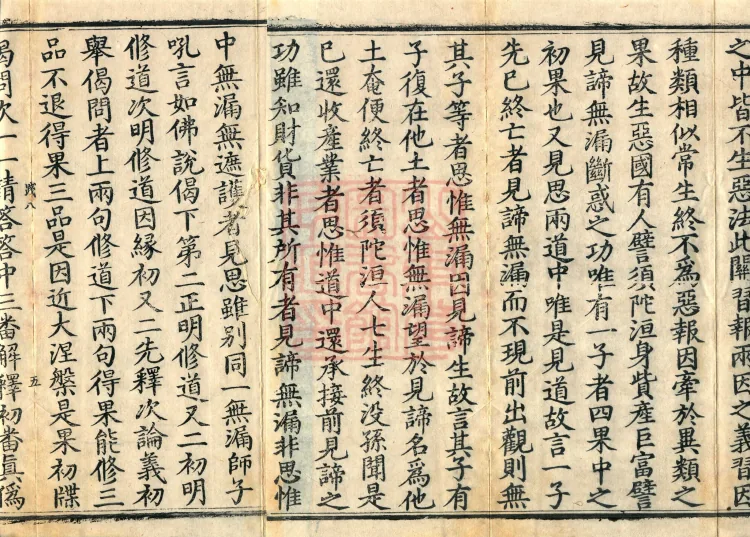 之中皆不生惡法此關習報兩因之義習因
種類相似常生終不爲惡報因牽於異類之
果故生惡國有人譬須陀洹身貲産巨富譬
見諦無漏斷惑之功唯有一子者四果中之
初果也又見思兩道中唯是見道故言一子
先已終亡者見諦無漏而不現前出觀則無
其子等者思惟無漏因見諦生故言其子有
子復在他土者思惟無漏望於見諦名爲他
土奄便終亡者須陀洹人七生終没孫聞是
已還收産業者思惟道中還承接前見諦之
功雖知財貨非其所有者見諦無漏非思惟
中無漏無遮護者見思雖別同一無漏師子
吼言如佛說偈下第二正明修道又二初明
修道次明修道因緣初又二先釋次論義初
舉偈問者上兩句修道下兩句得果能修三
品不退得果三品是因近大涅槃是果初牒
五
偈問次一一請答答中三番解釋初番眞僞